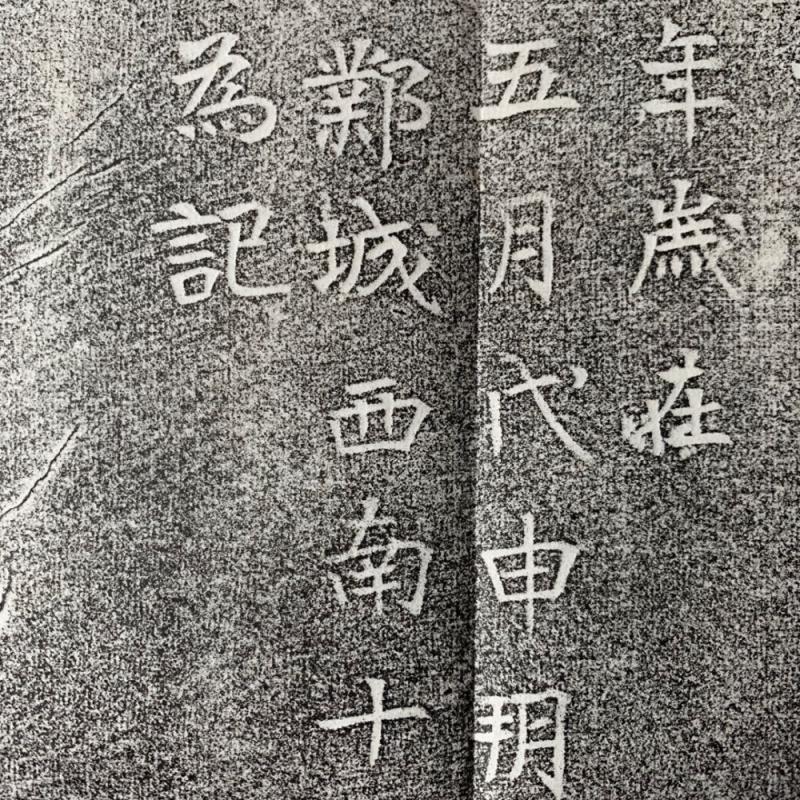 年歲在
五月戊申朔
鄴城西南十
為記